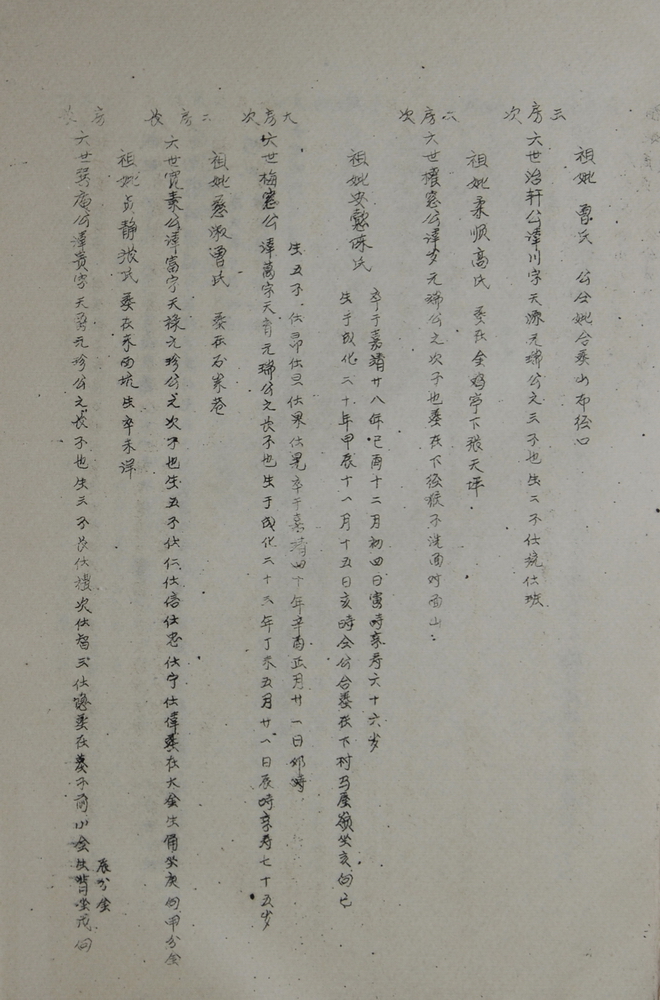 祖妣 曹氏 公分妣合葬山布徑口
三房次
六世治轩公諱川字天源元瑞公之三子也生二子仕琉仕班
祖妣柔顺高氏 葬在金鸡亭下張天坪
二房次
六世櫂窓公諱岁元瑞公之次子也葬在下徑猴子洗面对面山
祖妣安懿陈氏
卒于嘉靖廿八年己酉十二月初四日寅時享寿六十六岁
生于成化二十年甲辰十一月十五日亥時仝公合葬在下村马屋嶺坐亥向巳
大房次
六世梅窓公諱萬字天育元瑞公之长子也生于成化二十三年丁未五月廿一日辰時享寿七十五岁
生五子仕昂仕旦仕果仕晃卒于嘉靖四十年辛酉正月廿一日卯時
祖妣慈淑曹氏 葬在石岽巷
二房长
六世寬素公諱富字天禄元珍公之次子也生五子仕仁仕信仕忠仕宁仕偉葬在大金生角坐庚向甲分金
祖妣贞静张氏 葬在东西坑生卒未详
房
六世公諱贵字天爵元珍公之长子也生三子长仕楼次仕智三仕葬在前小金生背坐戌向
辰分金